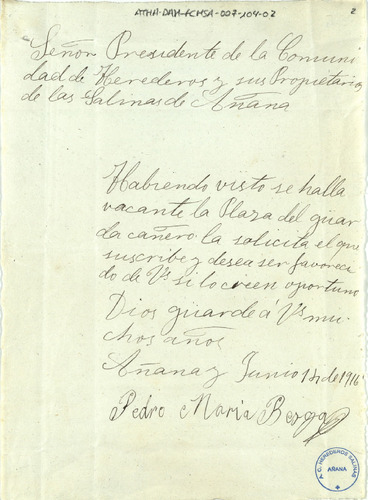 ATHA-DAH-FCHSA-007-104-02
2
Señor Presidente de la Comuni
dad de Herederos y sus Propietarios
de las Salinas de Añana
Habiendo visto se halla
vacante la Plaza del guar
da cañero la solicita el que
suscribe y desea ser favoreci
do de Vs si lo creen oportuno
Dios guarde á Vs mu
chos años
Añana y Junio 14 de 1916
Pedro Maria Berga
A.C. HEREDEROS SALINAS
AÑANA